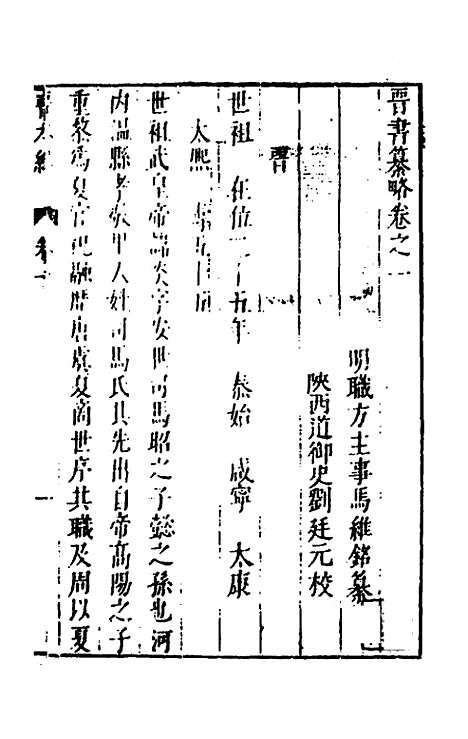 晋書纂略卷之一
明職方主事馬維銘纂
陝西道御史劉廷元校
晋
世祖 在位二十五年 泰始 咸寧 太康
太熙 壽五十五
世祖武皇帝諱炎字安世司馬昭之子懿之孫也河
内溫縣孝敬里人姓司馬氏其先出自帝高陽之子
重黎爲夏官祝融歷唐虞夏商世序其職及周以夏
卷一 一